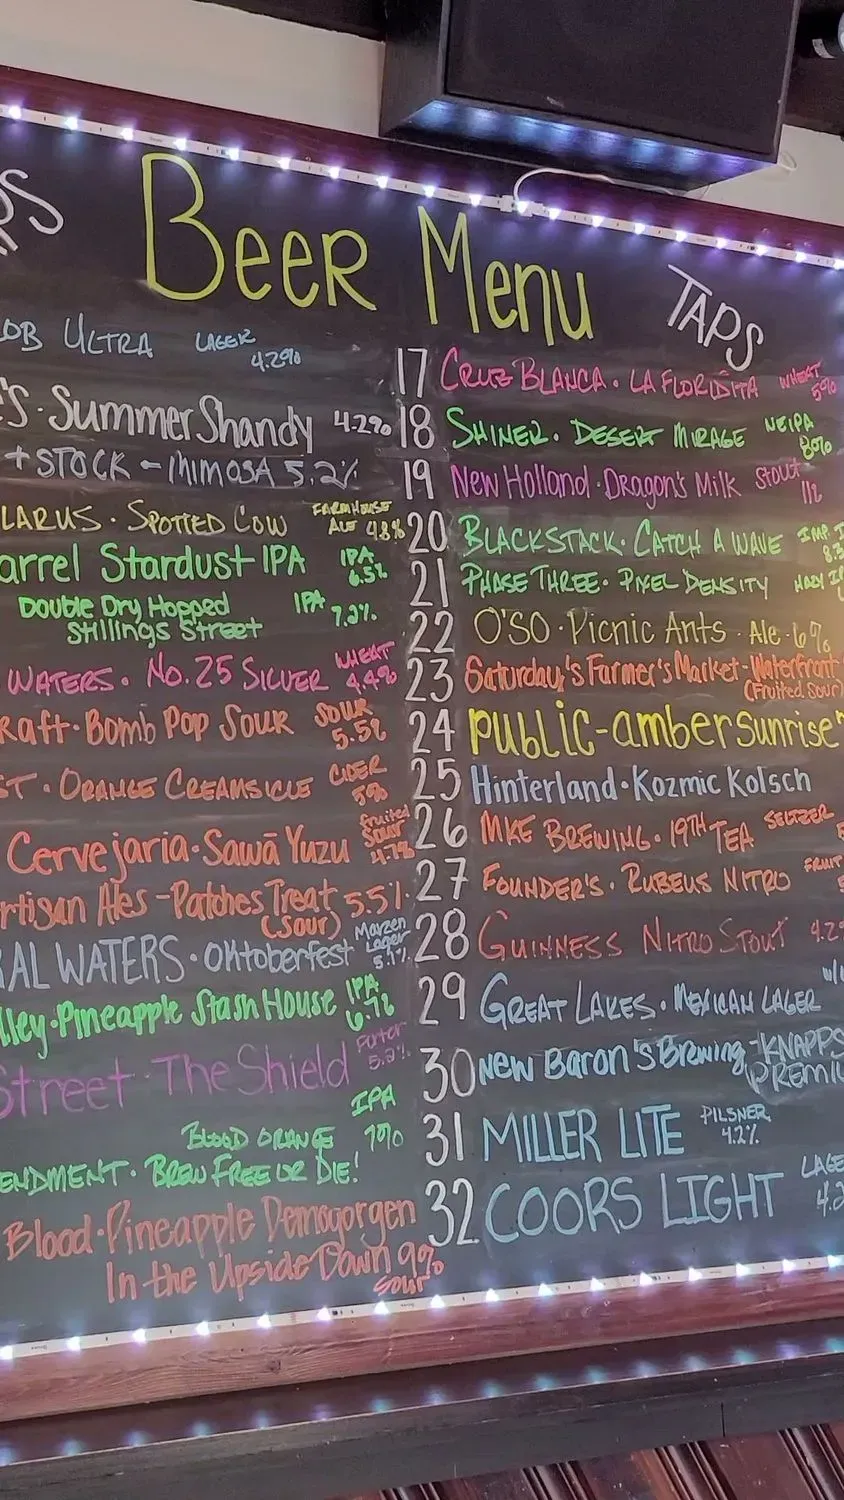 Beer Menu
TAPS
OB ULTRA LAGER 4.2%
'S · Summer Shandy 4.2%
+ STOCK - MIMOSA 5.2%
LARUS · SPOTTED COW FARMHOUSE ALE 4.8%
arrel Stardust IPA IPA 6.5%
Double Dry Hopped IPA 7.2%
Stillings Street
WATERS · No. 25 SILVER WHEAT 4.4%
raft · Bomb Pop Sour SOUR 5.5%
ST · ORANGE CREAMSICLE CIDER 5%
Cervejaria · Sawā Yuzu fruited Sour 4.7%
rtisan Ales - Patches Treat 5.5%
(Sour)
RAL WATERS · Oktoberfest Marzen Lager 5.1%
lley · Pineapple Stash House IPA 6.7%
Street · The Shield Porter 5.2%
BLOOD ORANGE IPA 7%
ENDMENT · BREW FREE OR DIE!
Blood · Pineapple Demogorgen
In the Upside Down 9%
Sour
17 CRUZ BLANCA · LA FLORIDITA WHEAT 5%
18 SHINER · DESERT MIRAGE NEIPA 8%
19 New Holland · Dragon's Milk Stout 11%
20 BLACKSTACK · CATCH A WAVE IMP. I 8.3
21 PHASE THREE · PIXEL DENSITY HAZY IP
22 O'SO · Picnic Ants · Ale · 6%
23 Saturday's Farmer's Market - Waterfront
(Fruited Sour)
24 Public - amber sunrise
25 Hinterland · Kozmic Kolsch
26 MKE BREWING · 19TH TEA SELTZER
27 FOUNDER'S · RUBEUS NITRO FRUIT
28 GUINNESS NITRO STOUT 4.2
29 GREAT LAKES · MEXICAN LAGER w/
30 New Baron's Brewing - KNAPPS
PREMIU
31 MILLER LITE PILSNER 4.2%
32 COORS LIGHT LAGE 4.2